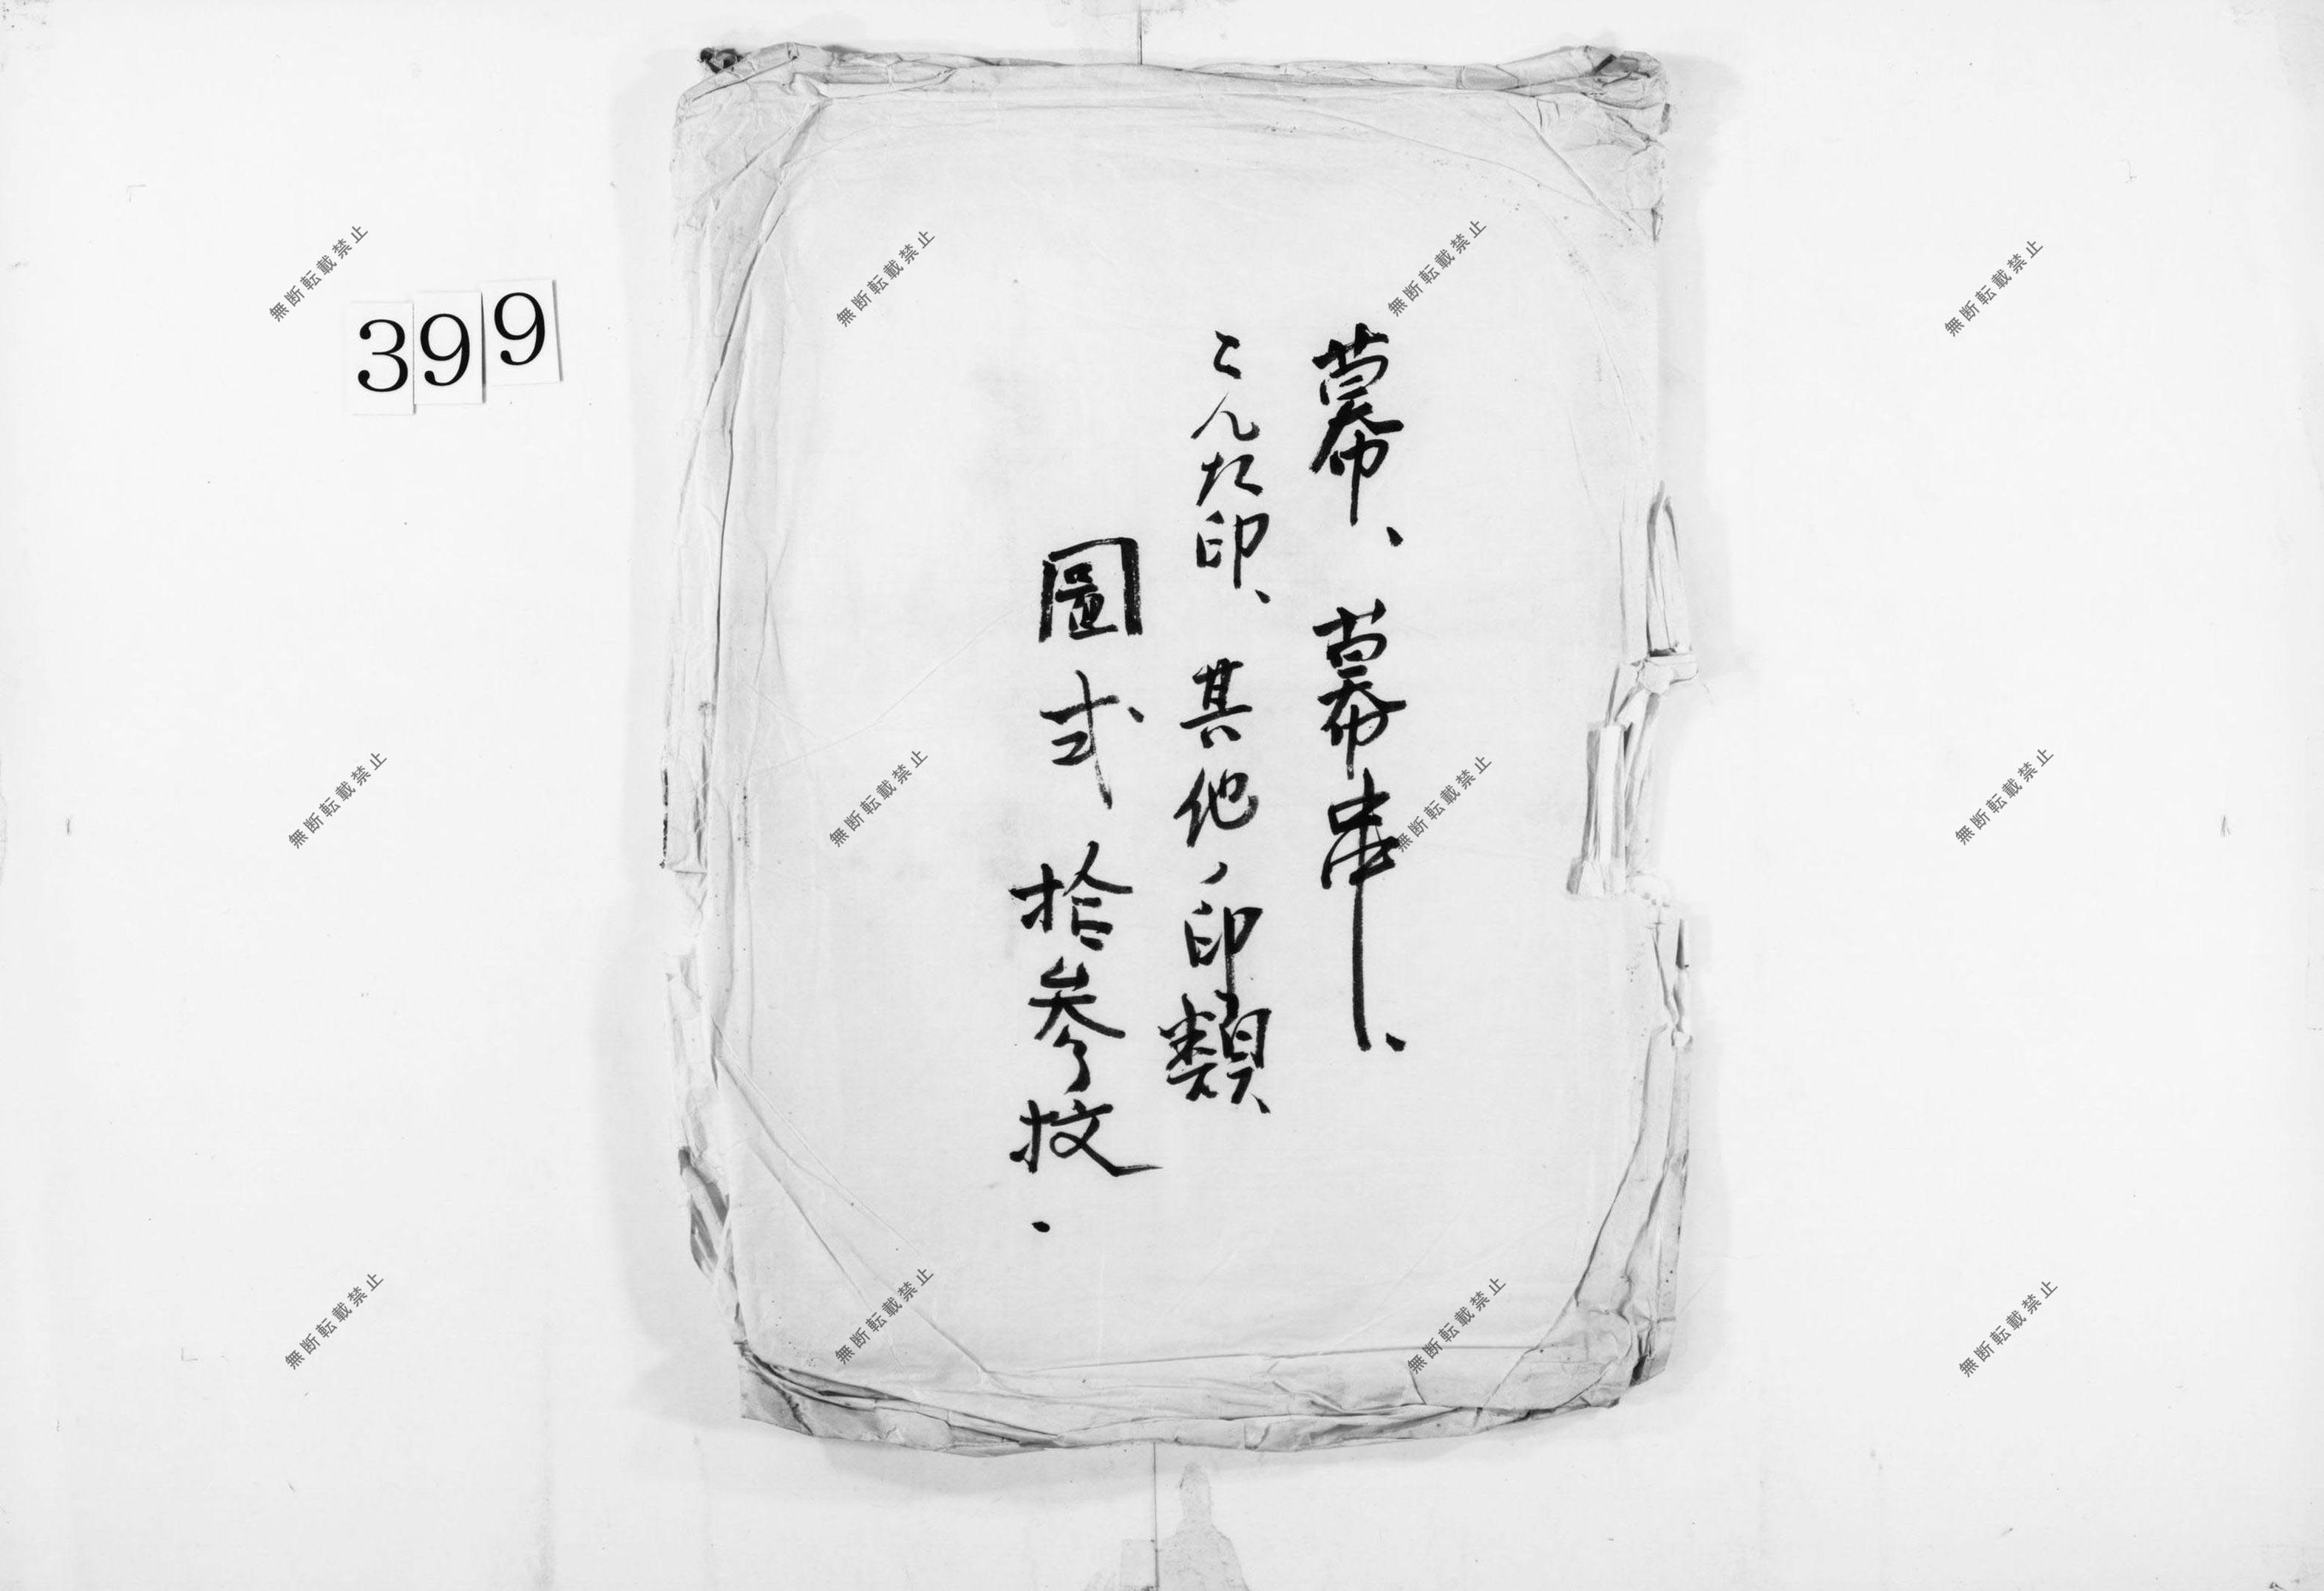 399
幕、幕串、
こんた印、其他ノ印類、
圖式 拾参枚.
無断転載禁止
無断転載禁止
無断転載禁止
無断転載禁止
無断転載禁止
無断転載禁止
無断転載禁止
無断転載禁止
無断転載禁止
無断転載禁止
無断転載禁止
無断転載禁止